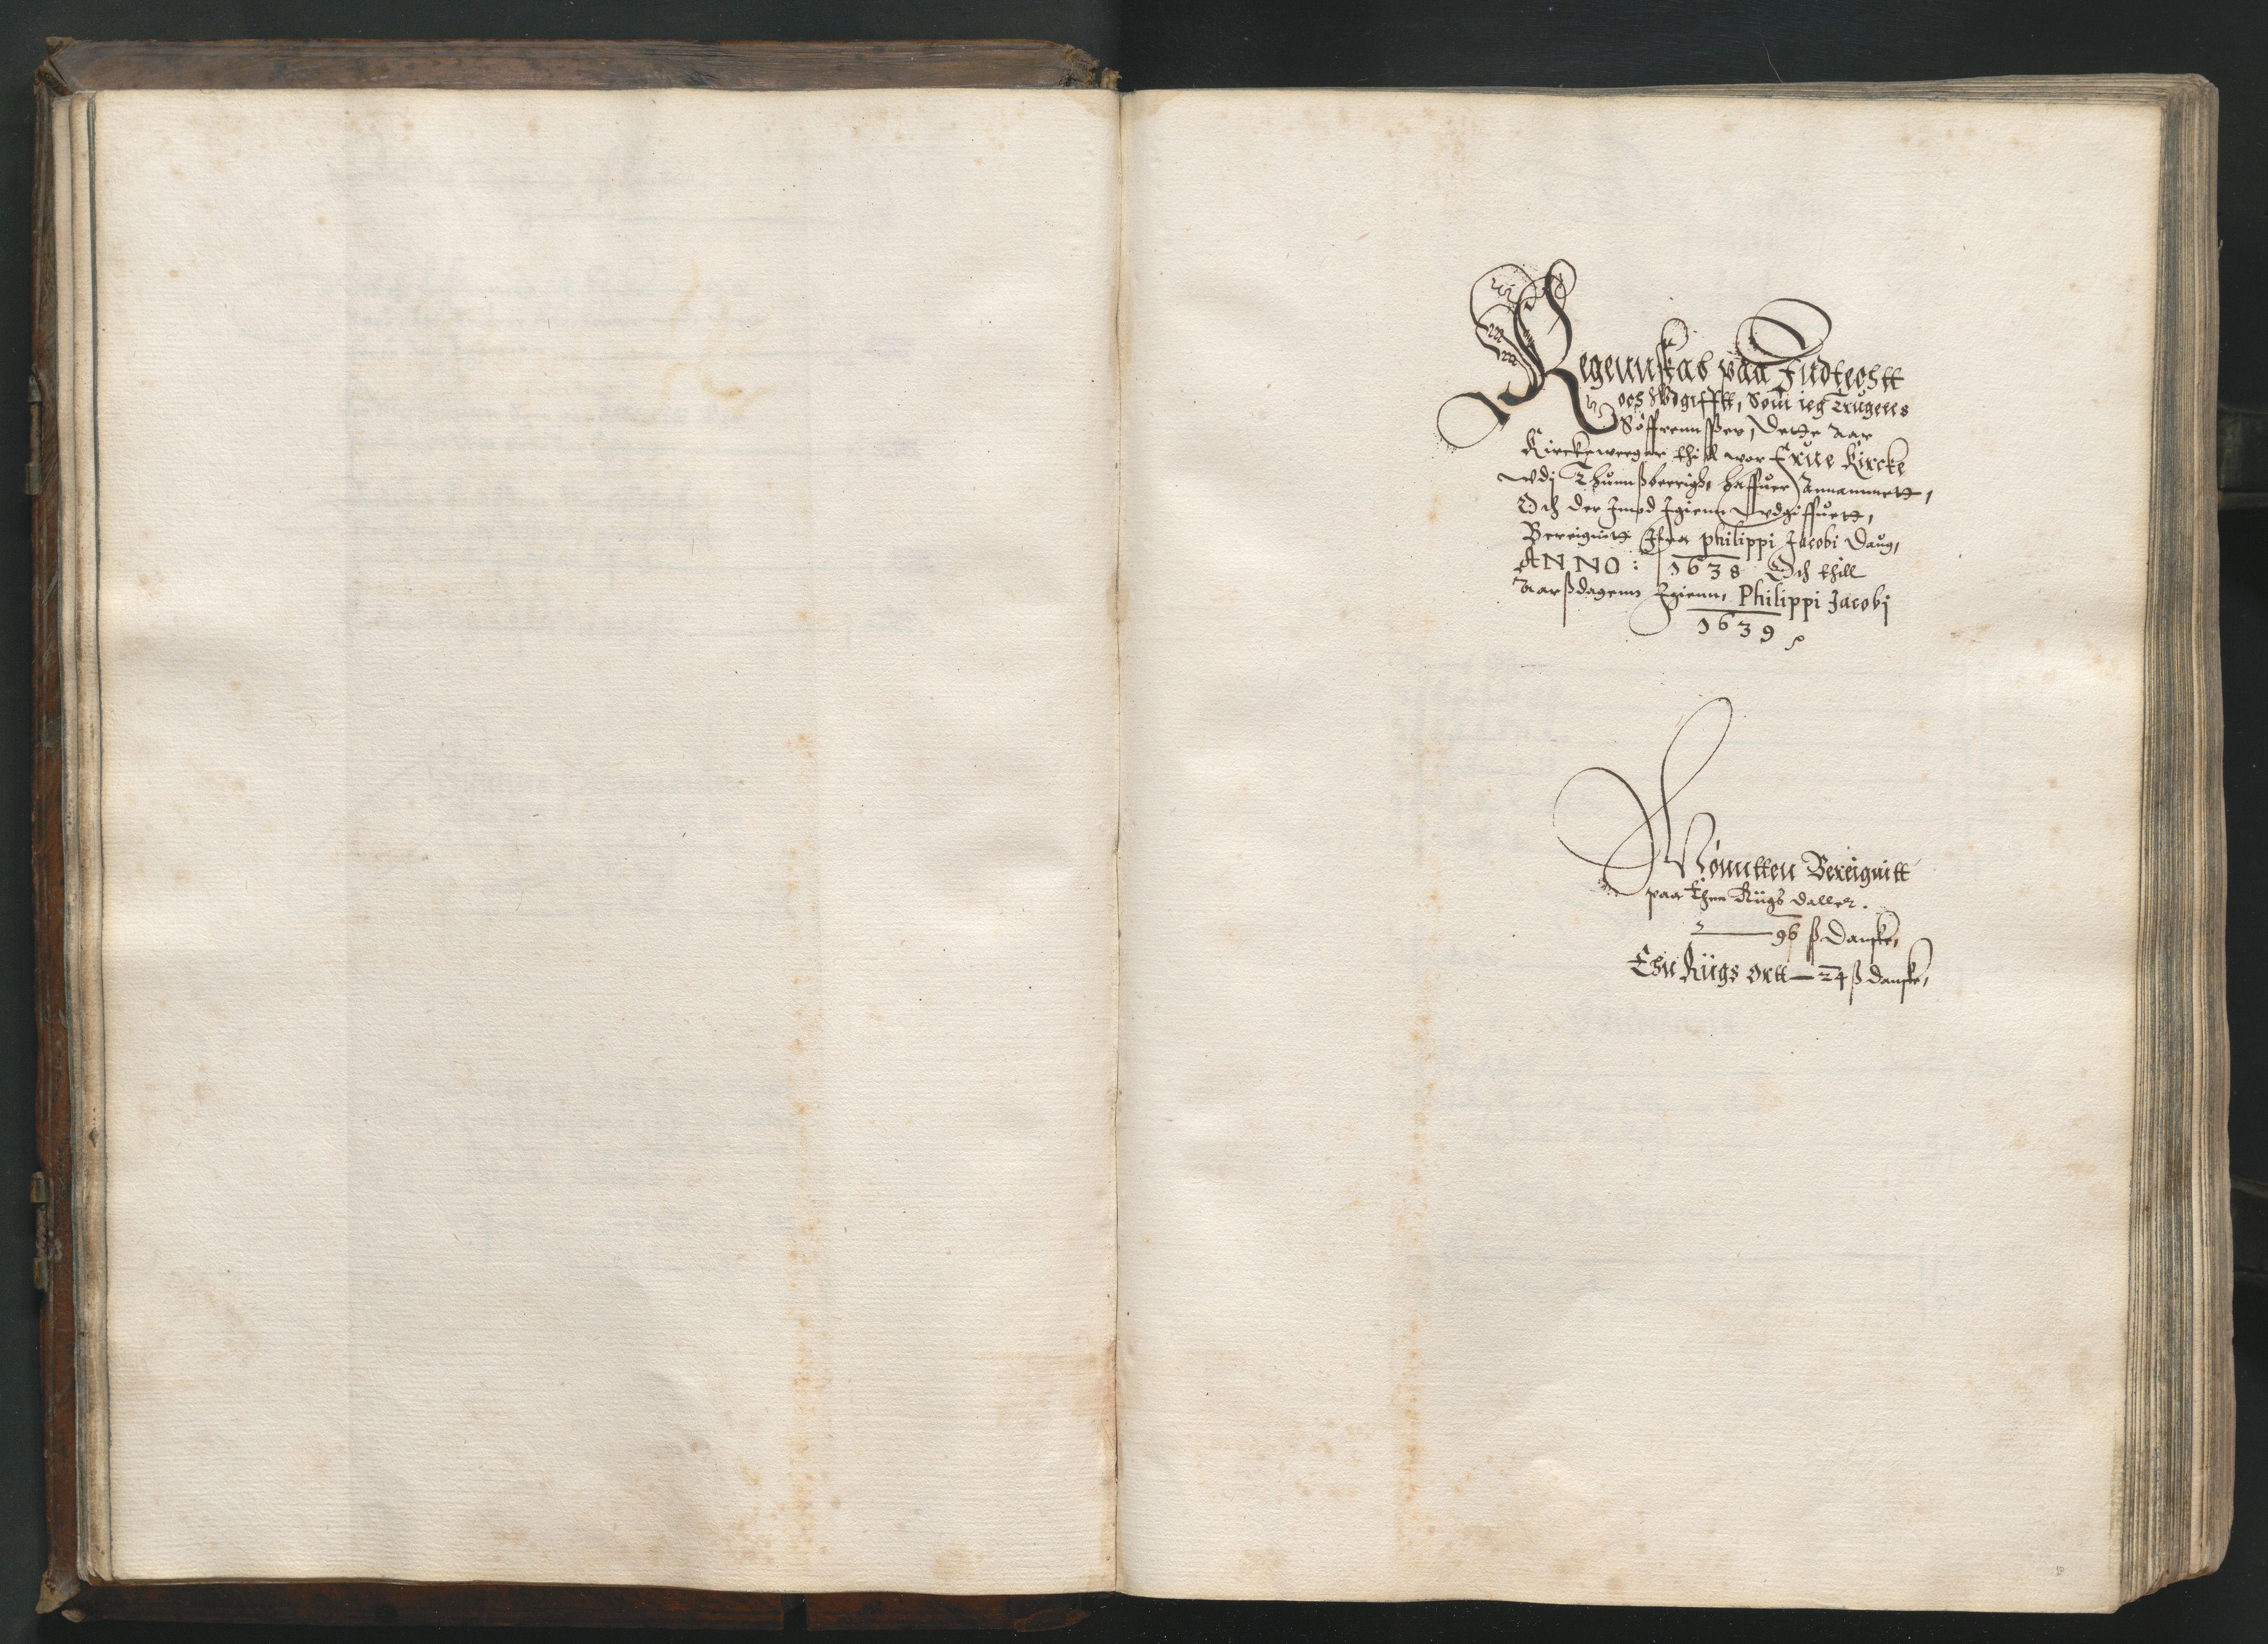 Regennskab paa Indtegtt
oes Wdgifftt, Som ieg Trugels
Söffrennßen, Dette Aar
Kirckewerger thill wor Frue Kircke
wdj Thunnßberrigh, haffuer Annammett,
Och der Jmod Jgienn wdgiffuett,
Bereignitt Fra philippi Jacobi Daug,
ANNO: 1638 Och thill
Aarßdagenn Jgienn, Philippi Jacobj
1639
Mönntten Bereignitt
paa Thenn Riigs daller.
96 ß Danske,
Thn Riigs ortt — 24 ß danske,